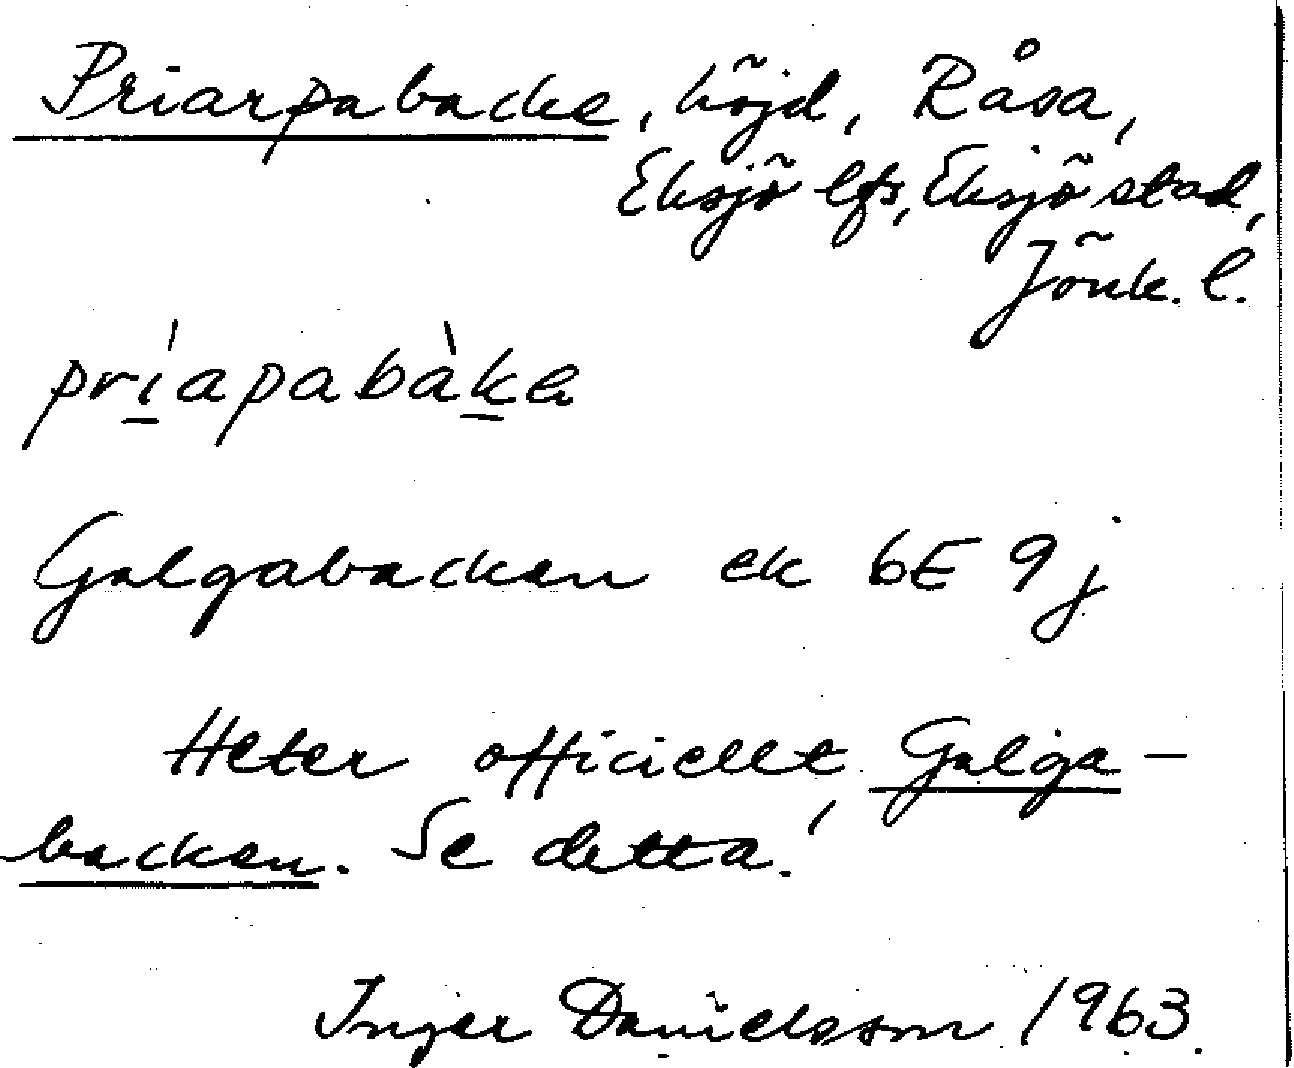 Priarpabacke, höjd, Råsa,
Eksjö lfs, Eksjö stad,
Jönk. l.
príapabàka
Galgabacken ek 6E 9j
Heter officiellt Galga-
backen. Se detta!
Inger Danielsson 1963.